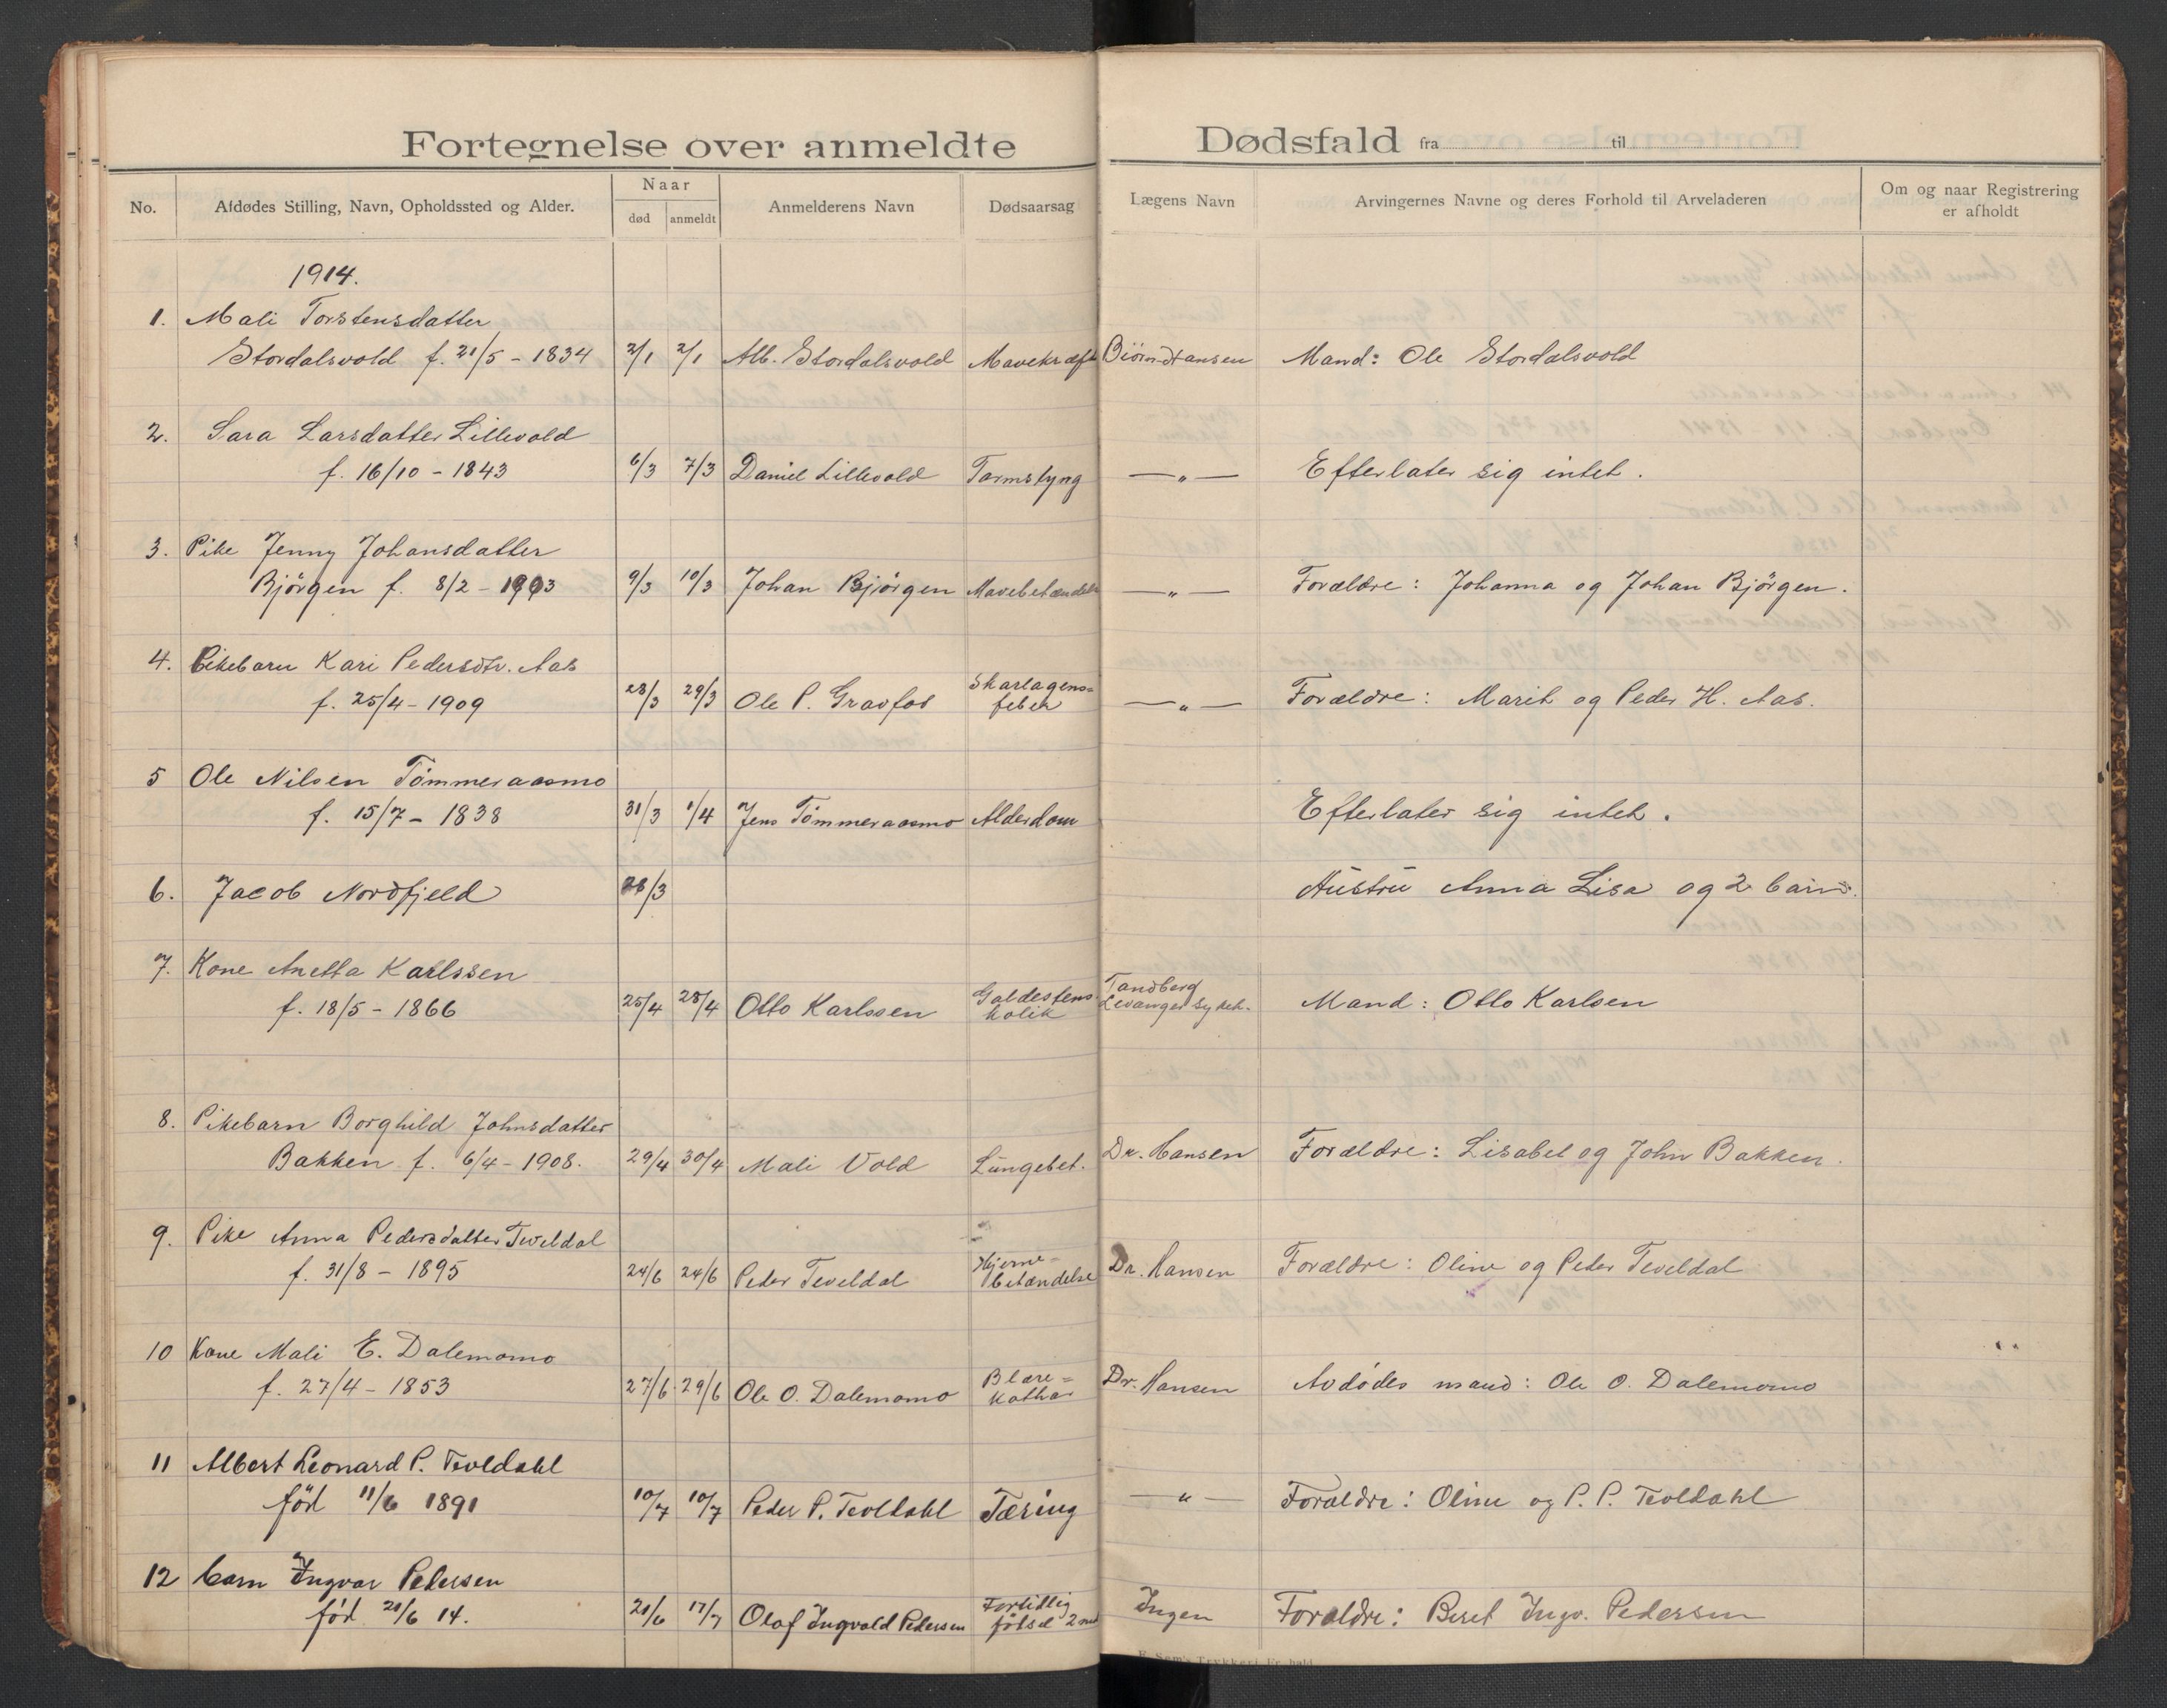 Fortegnelse over anmeldte Dødsfald fra til
No. Afdødes Stilling, Navn, Opholdssted og Alder. Naar død anmeldt Anmelderens Navn Dødsaarsag Lægens Navn Arvingernes Navne og deres Forhold til Arveladeren Om og naar Registrering er afholdt
1914.
1. Mali Torstensdatter
Stordalsvold f. 21/5 - 1834 2/1 2/1 Alb. Stordalsvold Mavekræft Mand: Ole Stordalsvold
2. Sara Larsdatter Lillevold
f. 16/10 - 1843 6/3 7/3 Daniel Lillevold Tarmslyng — " — Efterlater sig intet.
3. Pike Jenny Johansdatter
Bjørgen f. 8/2 - 1903 9/3 10/3 Johan Bjørgen Mavebetændelse — " — Forældre: Johanna og Johan Bjørgen.
4. Pikebarn Kari Pedersdtr. Aas
f. 25/4 - 1909 28/3 29/3 Ole P. Gravfos Skarlagens=
feber — " — Forældre: Marit og Peder H. Aas.
5 Ole Nilsen Tømmeraasmo
f. 15/7 - 1838 31/3 1/4 Jens Tømmeraasmo Alderdom Efterlater sig intet.
6. Jacob Nordfjeld 28/3 Hustru Anna Lisa og 2 barn.
7. Kone Anetta Karlssen
f. 18/5 - 1866 25/4 28/4 Otto Karlssen Galdestens
kolik Tandberg
Levanger sykeh. Mand: Otto Karlsen
8. Pikebarn Borghild Johnsdatter
Bakken f. 6/4 - 1908. 29/4 30/4 Mali Vold Lungebet. Dr. Hansen Forældre: Lisabet og John Bakken.
9. Pike Anna Pedersdatter Teveldal
f. 31/8 - 1895 24/6 24/6 Peder Teveldal Hjerne-
betændelse Dr. Hansen Forældre: Oline og Peder Teveldal
10 Kone Mali E. Dalemomo
f. 27/4 - 1853 27/6 29/6 Ole O. Dalemomo Blære=
kathar Dr. Hansen Avdødes mand: Ole O. Dalemomo
11 Albert Leonard P. Tevldahl
född 11/6 1891 10/7 10/7 Peder P. Tevldahl Tæring — " — Forældre: Oline og P. P. Tevldahl
12 barn Ingvar Pedersen
född 20/6 14. 20/6 17/7 Olaf Ingvald Pedersen Fortidlig
fötsel 2 md Ingen Forældre: Beret Ingv. Pedersen